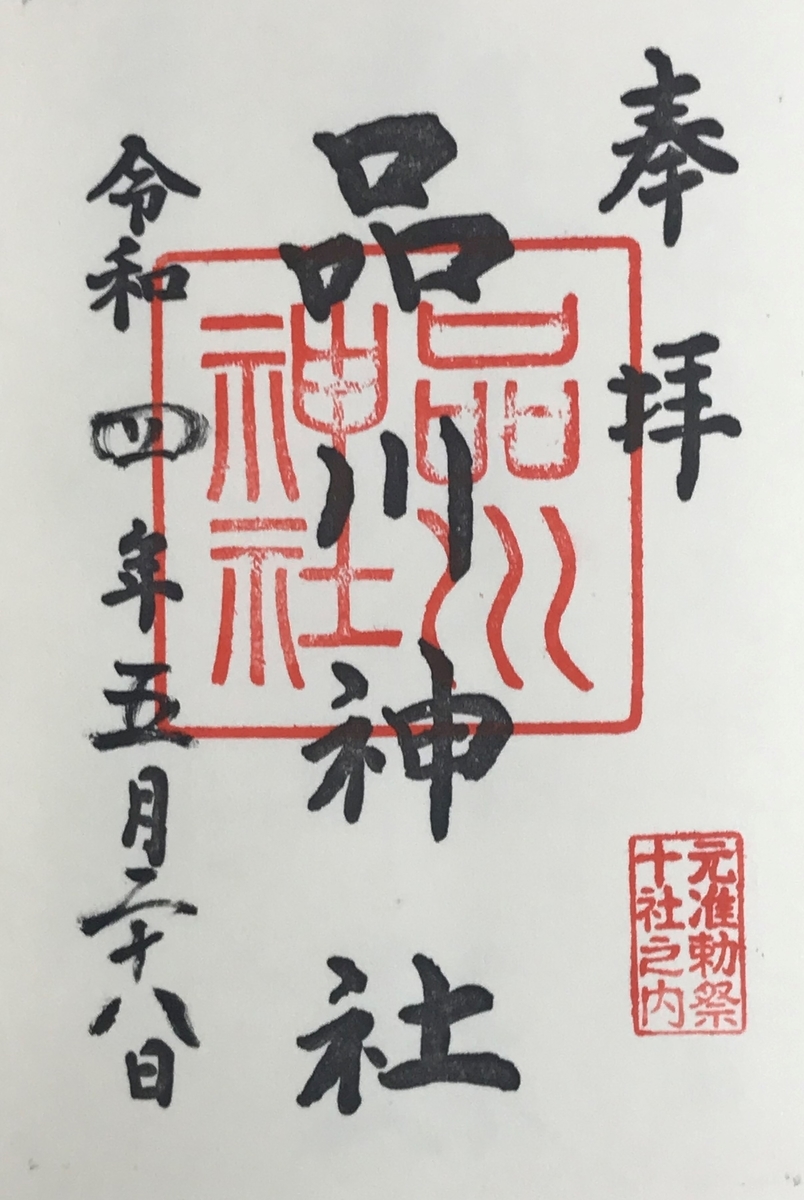 奉拝
元准勅祭
十社之内
品川神社
品川
神社
令和四年五月二十八日